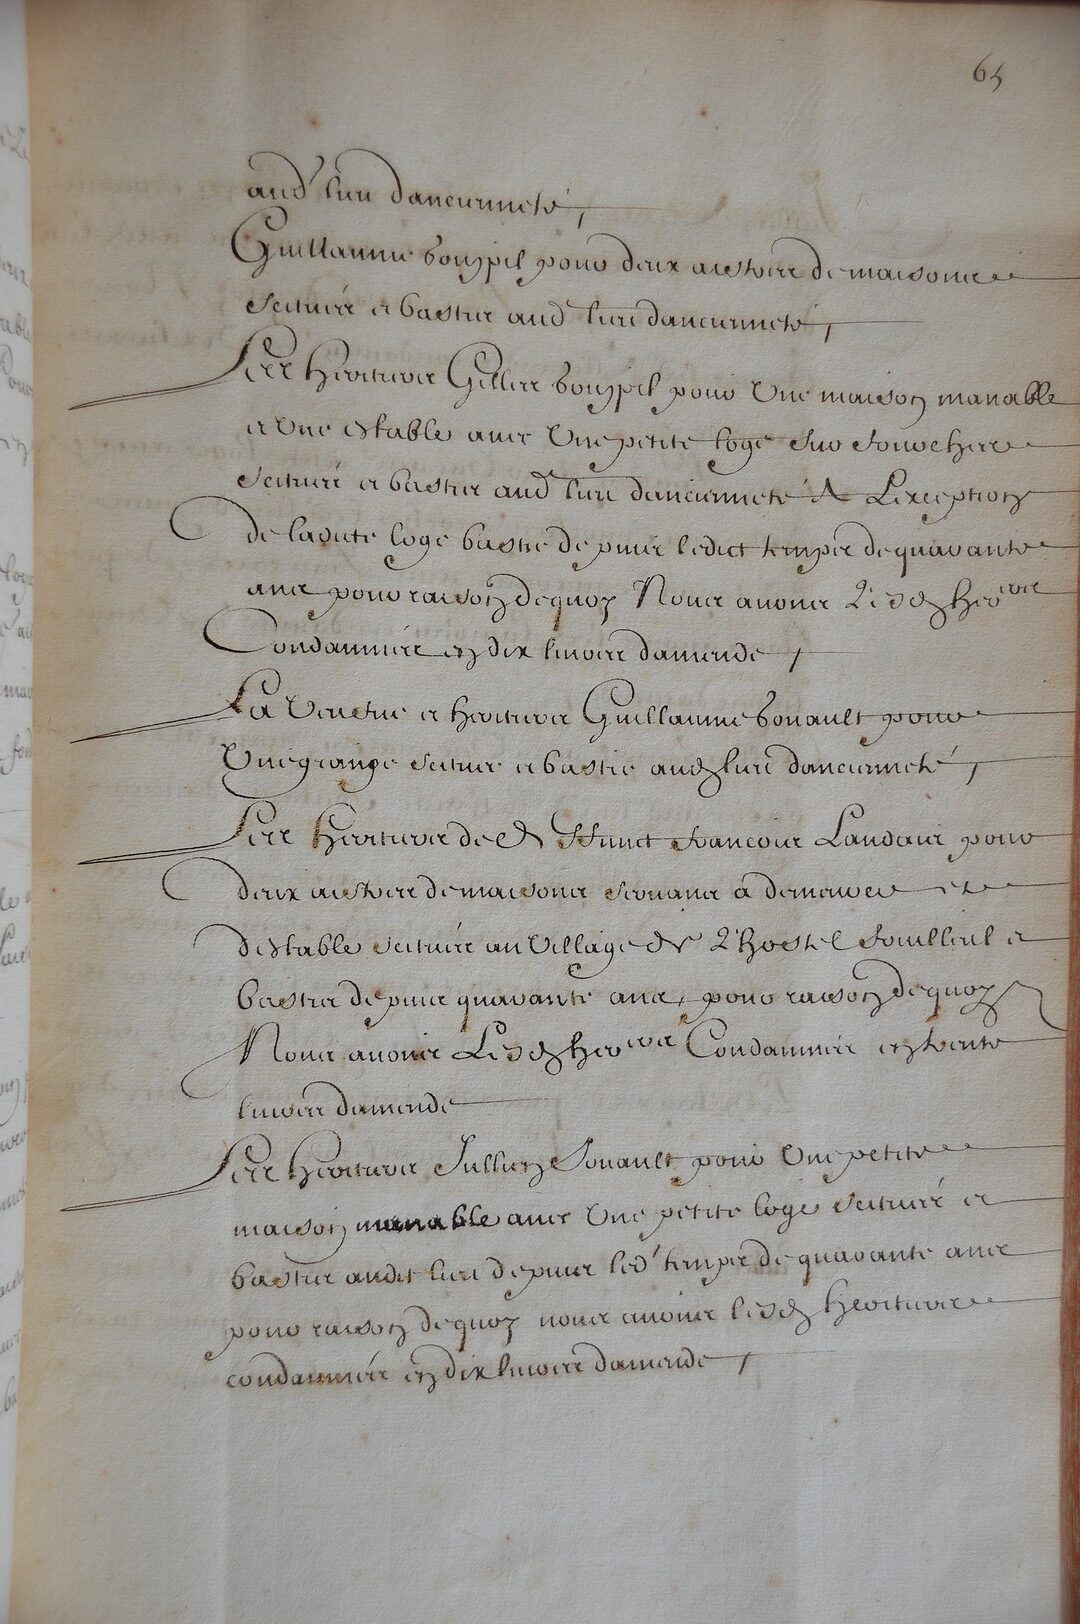 65
aud' lieu danceurmete,
Guillaume bouppil pour deux aistres de maisons
scituées et basties aud' lieu danceurmete,
Les heritiers Gilles bouppil pour Une maison manable
et Une estable avec Une petite loge sur fourcheres
scitués et basties aud' lieu danceurmete A Lexception
de ladite loge bastie depuis ledict temps de quarante
ans pour raison de quoy Nous avons Lesd heritiers
Condamnés en dix livres damende,
La Veufve et heritiers Guillaume bouault pour
Une grange scituée et bastie aud lieu danceurmeté,
Les heritiers de deffunct francois Landais pour
deux aistres de maisons servans a demeure et
destable scituées au Village de L'hostel fouilleul et
basties depuis quarante ans, pour raison de quoy
Nous avons Lesd heritiers Condamnés en trente
livres damende
Les heritiers Jullien bouault pour Une petite
maison manable avec Une petite loge scituées et
basties audit lieu depuis led' temps de quarante ans
pour raison de quoy nous avons lesd heritiers
condamnés en dix livres damende,